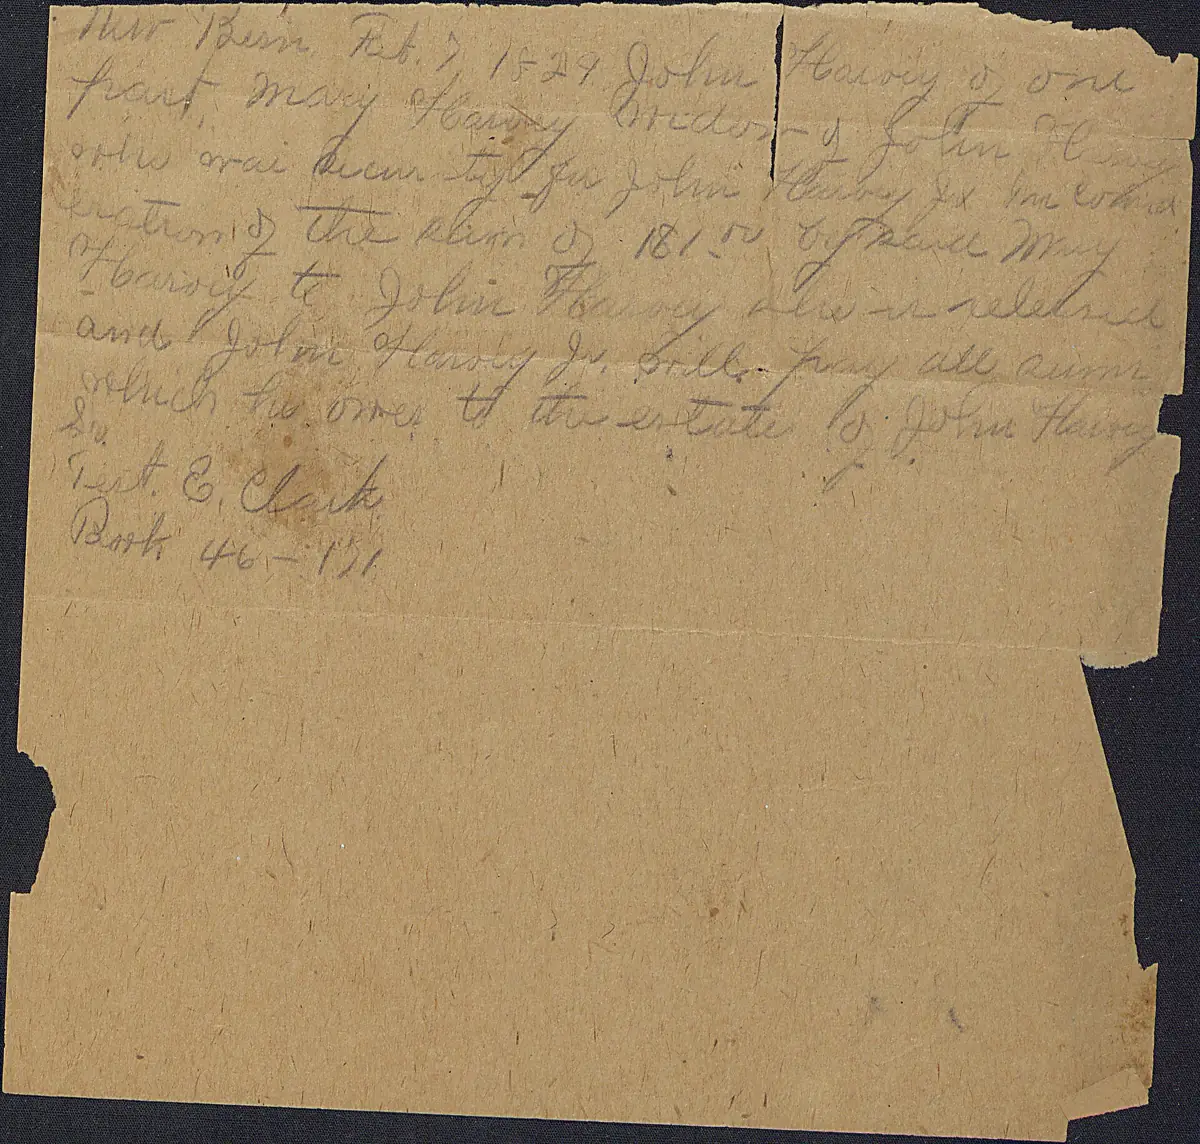 New Bern Feb. 7 1829 John Harvey of one
part, Mary Harvey widow of John Harvey
who was security for John Harvey Jr In consid
eration of the sum of 181.00 by said Mary
Harvey to John Harvey she is released
and John Harvey Jr. will pay all sums
which he owes to the estate of John Harvey
Sr.
Test. E. Clark
Book 46 - 171